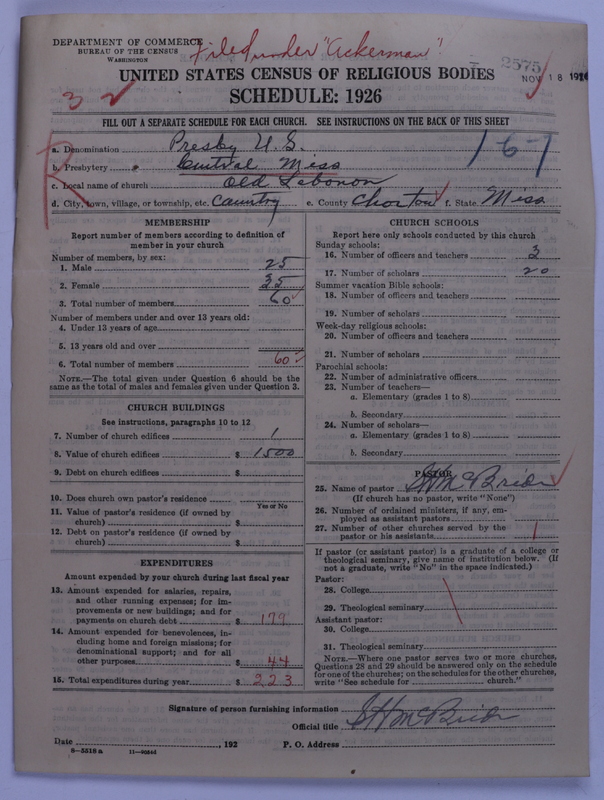 Filed under "Ackerman"
DEPARTMENT OF COMMERCE
BUREAU OF THE CENSUS
WASHINGTON
2575
NOV 18 1926
UNITED STATES CENSUS OF RELIGIOUS BODIES
SCHEDULE: 1926
32
FILL OUT A SEPARATE SCHEDULE FOR EACH CHURCH. SEE INSTRUCTIONS ON THE BACK OF THIS SHEET
R
a. Denomination Presby U.S.
167
b. Presbytery Central Miss
c. Local name of church Old Lebonon
d. City, town, village, or township, etc. Country e. County Choctow f. State Miss
MEMBERSHIP
Report number of members according to definition of member in your church
Number of members, by sex:
1. Male 25
2. Female 35
3. Total number of members 60
Number of members under and over 13 years old:
4. Under 13 years of age
5. 13 years old and over
6. Total number of members 60
NOTE.—The total given under Question 6 should be the same as the total of males and females given under Question 3.
CHURCH BUILDINGS
See instructions, paragraphs 10 to 12
7. Number of church edifices 1
8. Value of church edifices $ 1500
9. Debt on church edifices $
10. Does church own pastor's residence
Yes or No
11. Value of pastor's residence (if owned by church) $
12. Debt on pastor's residence (if owned by church) $
EXPENDITURES
Amount expended by your church during last fiscal year
13. Amount expended for salaries, repairs, and other running expenses; for improvements or new buildings; and for payments on church debt $ 179
14. Amount expended for benevolences, including home and foreign missions; for denominational support; and for all other purposes $ 44
15. Total expenditures during year $ 223
CHURCH SCHOOLS
Report here only schools conducted by this church
Sunday schools:
16. Number of officers and teachers 3
17. Number of scholars 20
Summer vacation Bible schools:
18. Number of officers and teachers
19. Number of scholars
Week-day religious schools:
20. Number of officers and teachers
21. Number of scholars
Parochial schools:
22. Number of administrative officers
23. Number of teachers—
a. Elementary (grades 1 to 8)
b. Secondary
24. Number of scholars—
a. Elementary (grades 1 to 8)
b. Secondary
PASTOR
25. Name of pastor SH McBrion
(If church has no pastor, write "None")
26. Number of ordained ministers, if any, employed as assistant pastors
27. Number of other churches served by the pastor or his assistants 1
If pastor (or assistant pastor) is a graduate of a college or theological seminary, give name of institution below. (If not a graduate, write "No" in the space indicated.)
Pastor:
28. College
29. Theological seminary
Assistant pastor:
30. College
31. Theological seminary
NOTE.—Where one pastor serves two or more churches, Questions 28 and 29 should be answered only on the schedule for one of the churches; on the schedules for the other churches, write "See schedule for church."
Signature of person furnishing information
Official title SH McBrion
Date , 192 P. O. Address
8-5518 a